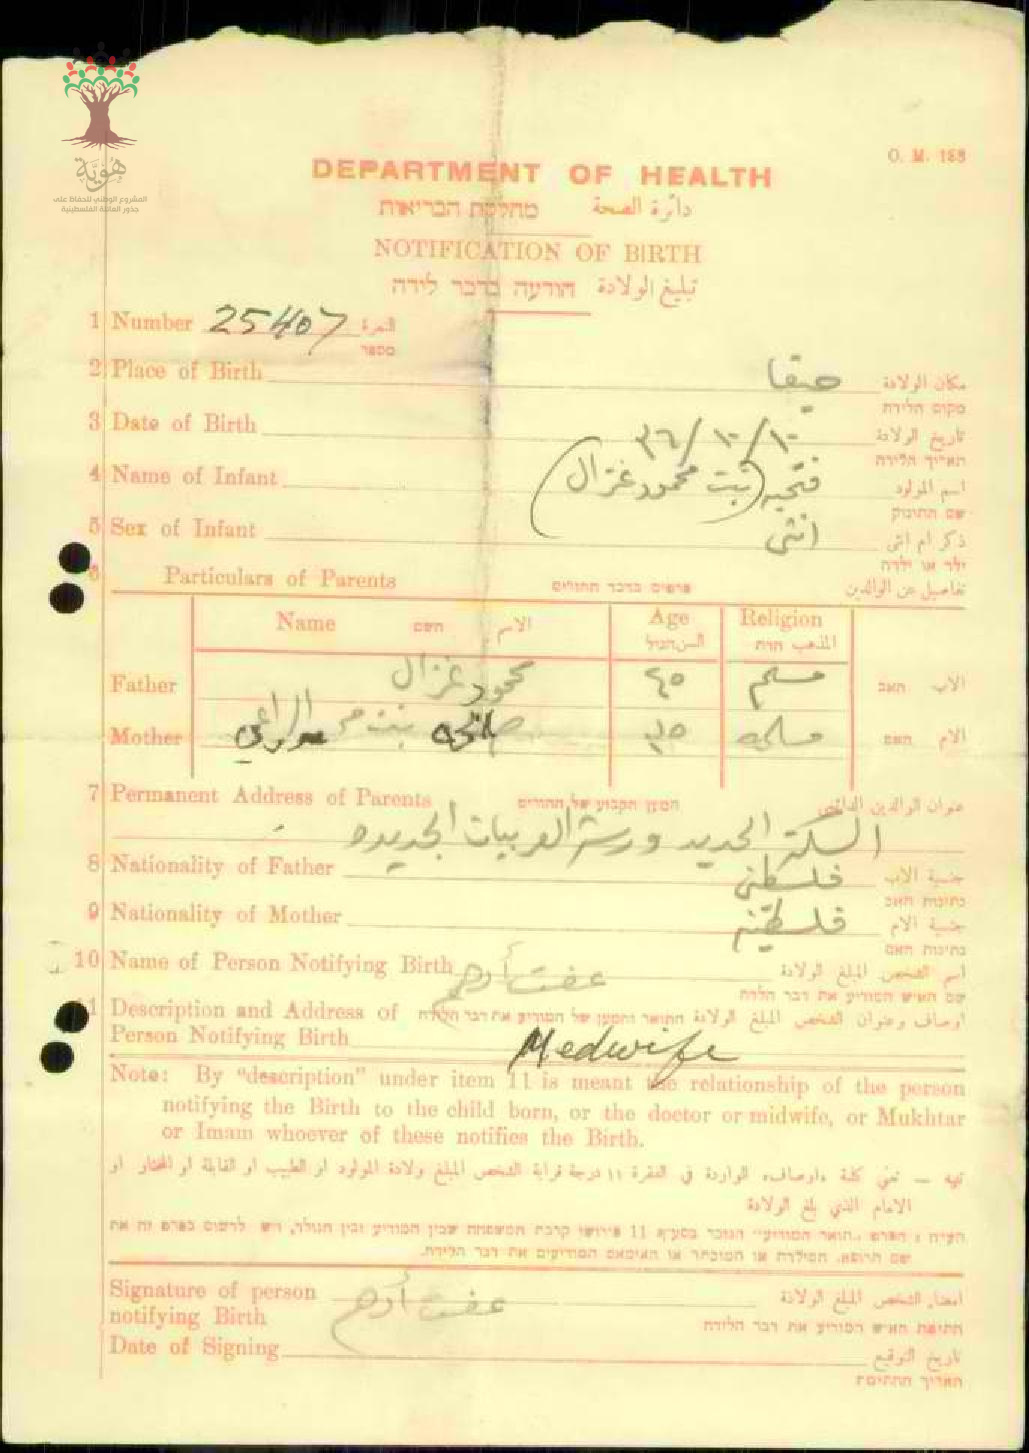 هُوِيَّة
المشروع الوطني للحفاظ على
جذور العائلة الفلسطينية
O. M. 188
DEPARTMENT OF HEALTH
מחלקת הבריאות دائرة الصحة
NOTIFICATION OF BIRTH
הודעה בדבר לידה تبليغ الولادة
1 Number 25407 النمرة
מספר
2 Place of Birth حيفا مكان الولادة
מקום הלידה
3 Date of Birth ١٠/١٠/٣٦ تاريخ الولادة
תאריך הלידה
4 Name of Infant فتحيه (بنت محمود غزال) اسم المولود
שם התינוק
5 Sex of Infant انثى ذكر ام انثى
ילד או ילדה
6 Particulars of Parents פרטים בדבר ההורים تفاصيل عن الوالدين
Name השם الاسم Age السن הגיל Religion المذهب הדת
Father محمود غزال ٤٥ مسلم الاب האב
Mother صالحه بنت ٣٥ مسلمه الام האם
7 Permanent Address of Parents המען הקבוע של ההורים عنوان الوالدين الدائم
السكة الحديد ورشة العربيات الجديده
8 Nationality of Father فلسطيني جنسية الاب
נתינות האב
9 Nationality of Mother فلسطينيه جنسية الام
נתינות האם
10 Name of Person Notifying Birth عفت أدهم اسم الشخص المبلغ الولادة
שם האיש המודיע את דבר הלידה
11 Description and Address of התואר והמען של המודיע את דבר הלידה اوصاف وعنوان الشخص المبلغ الولادة
Person Notifying Birth Medwife
Note: By "description" under item 11 is meant the relationship of the person
notifying the Birth to the child born, or the doctor or midwife, or Mukhtar
or Imam whoever of these notifies the Birth.
تنبيه — تعني كلمة «اوصاف» الواردة في الفقرة ١١ درجة قرابة الشخص المبلغ ولادة المولود او الطبيب او القابلة او المختار او
الامام الذي بلغ الولادة
הערה: הפרט "תואר המודיע" הנזכר בסעיף 11 פירושו קרבת המשפחה שבין המודיע ובין הנולד, ויש לרשום בפרט זה את
שם הרופא, המילדת או המוכתר או האימאם המודיעים את דבר הלידה.
Signature of person عفت أدهم امضاء الشخص المبلغ الولادة
notifying Birth חתימת האיש המודיע את דבר הלידה
Date of Signing تاريخ التوقيع
תאריך החתימה